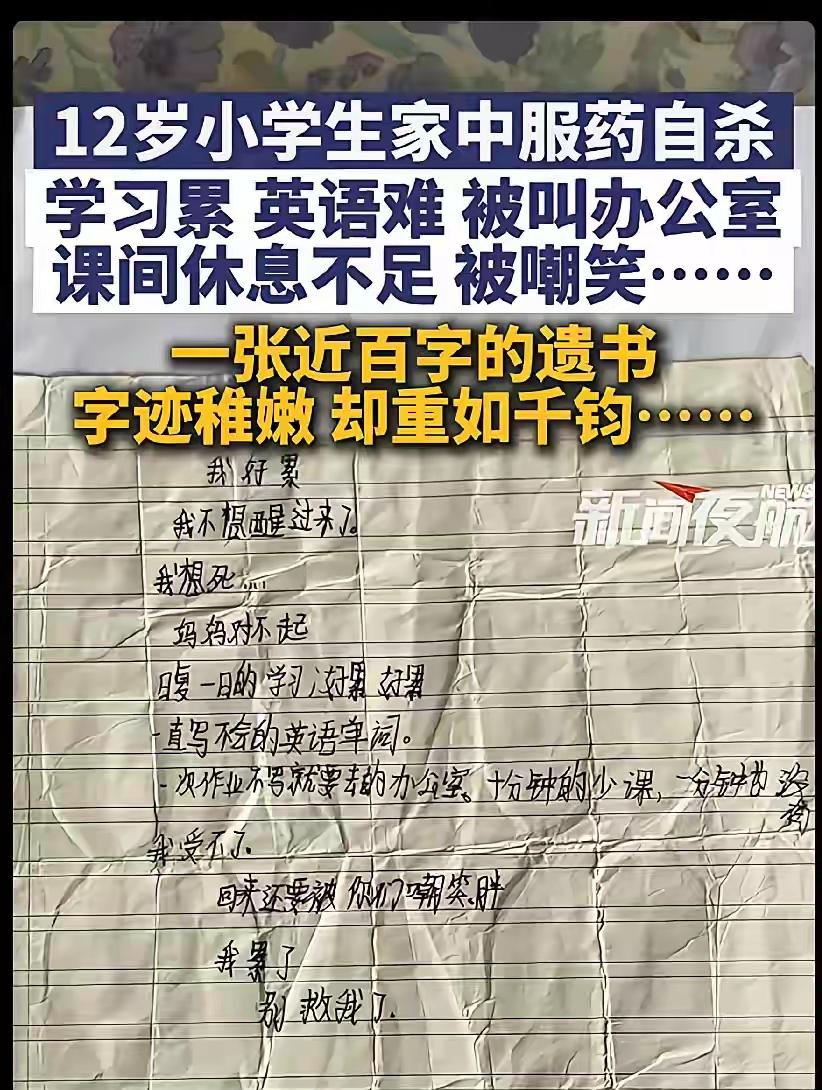 12岁小学生家中服药自杀
学习累 英语难 被叫办公室
课间休息不足 被嘲笑……
一张近百字的遗书
字迹稚嫩 却重如千钧……
NEWS
新闻夜航
我好累
我不想醒过来了。
我想死....
妈妈对不起
日复一日的学习,好累 好累
一直写不会的英语单词。
一次作业不写就要去的办公室。十分钟的少课,一分钟也没有
我受不了.
回来还要被你们嘲笑胖
我累了
别救我了.